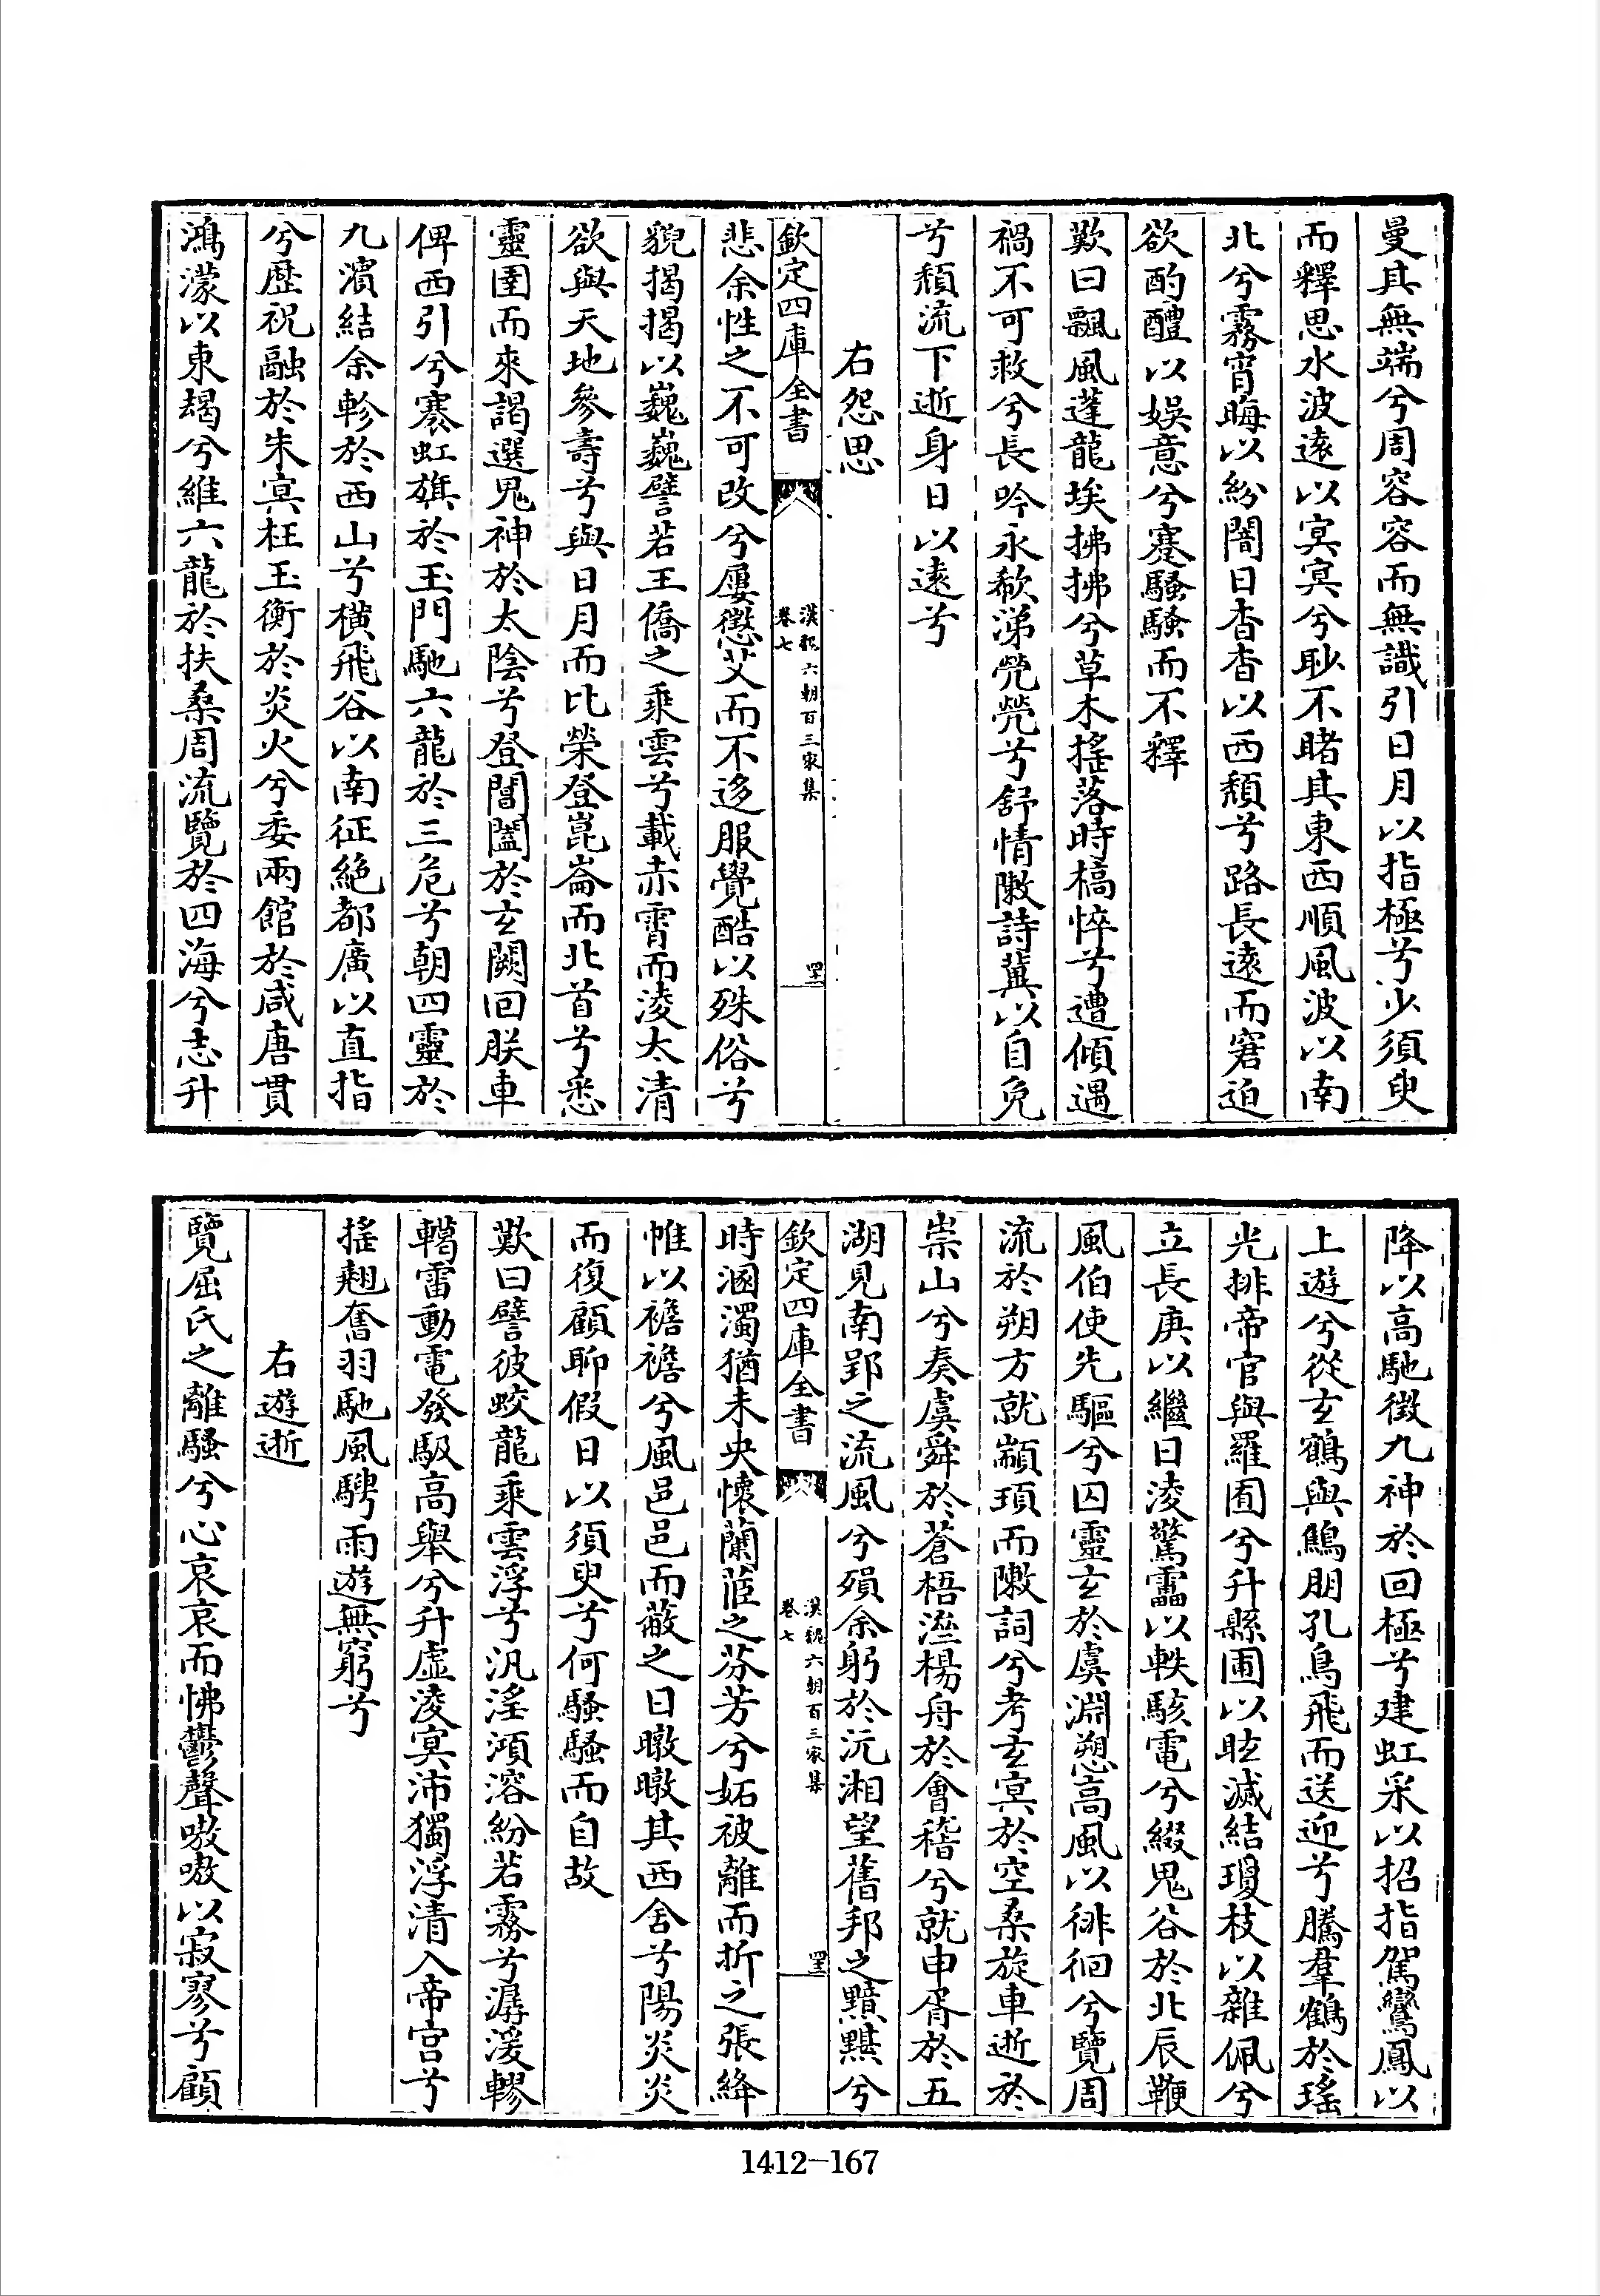 曼其無端兮周容容而無識引日月以指極兮少須臾
而釋思水波遠以冥冥兮眇不睹其東西順風波以南
北兮霧宵晦以紛闇日杳杳以西頹兮路長遠而窘迫
欲酌醴以娛意兮蹇騷騷而不釋
歎曰飄風蓬龍埃拂拂兮草木搖落時槁悴兮遭傾遇
禍不可救兮長吟永欷涕煢煢兮舒情敶詩冀以自免
兮頹流下逝身日以遠兮
右怨思
欽定四庫全書
漢魏六朝百三家集
卷七
四十二
悲余性之不可改兮屢懲艾而不迻服覺酷以殊俗兮
貌揭揭以巍巍譬若王僑之乘雲兮載赤霄而淩太清
欲與天地參壽兮與日月而比榮登崑崙而北首兮悉
靈圉而來謁選鬼神於太陰兮登閶闔於玄闕回朕車
俾西引兮褰虹旗於玉門馳六龍於三危兮朝四靈於
九濱結余軫於西山兮橫飛谷以南征絶都廣以直指
兮歷祝融於朱冥枉玉衡於炎火兮委兩館於咸唐貫
鴻濛以東朅兮維六龍於扶桑周流覽於四海兮志升
降以高馳徵九神於回極兮建虹采以招指駕鸞鳳以
上遊兮從玄鶴與鷦朋孔鳥飛而送迎兮騰羣鶴於瑤
光排帝官與羅囿兮升縣圃以眩滅結瓊枝以雜佩兮
立長庚以繼日淩驚靁以軼駭電兮綴鬼谷於北辰鞭
風伯使先驅兮囚靈玄於虞淵愬高風以徘徊兮覽周
流於朔方就顓頊而敶詞兮考玄冥於空桑旋車逝於
崇山兮奏虞舜於蒼梧濟楊舟於會稽兮就申胥於五
湖見南郢之流風兮殞余躬於沅湘望舊邦之黯黮兮
欽定四庫全書
漢魏六朝百三家集
卷七
四十三
時溷濁猶未央懷蘭茞之芬芳兮妬被離而折之張絳
帷以襜襜兮風邑邑而蔽之日暾暾其西舍兮陽炎炎
而復顧聊假日以須臾兮何騷騷而自故
歎曰譬彼蛟龍乘雲浮兮汎淫澒溶紛若霧兮潺湲轇
轕雷動電發馺高舉兮升虛淩冥沛獨浮清入帝宫兮
搖翹奮羽馳風騁雨遊無窮兮
右遊逝
覽屈氏之離騷兮心哀哀而怫鬱聲嗷嗷以寂寥兮顧
1412-167